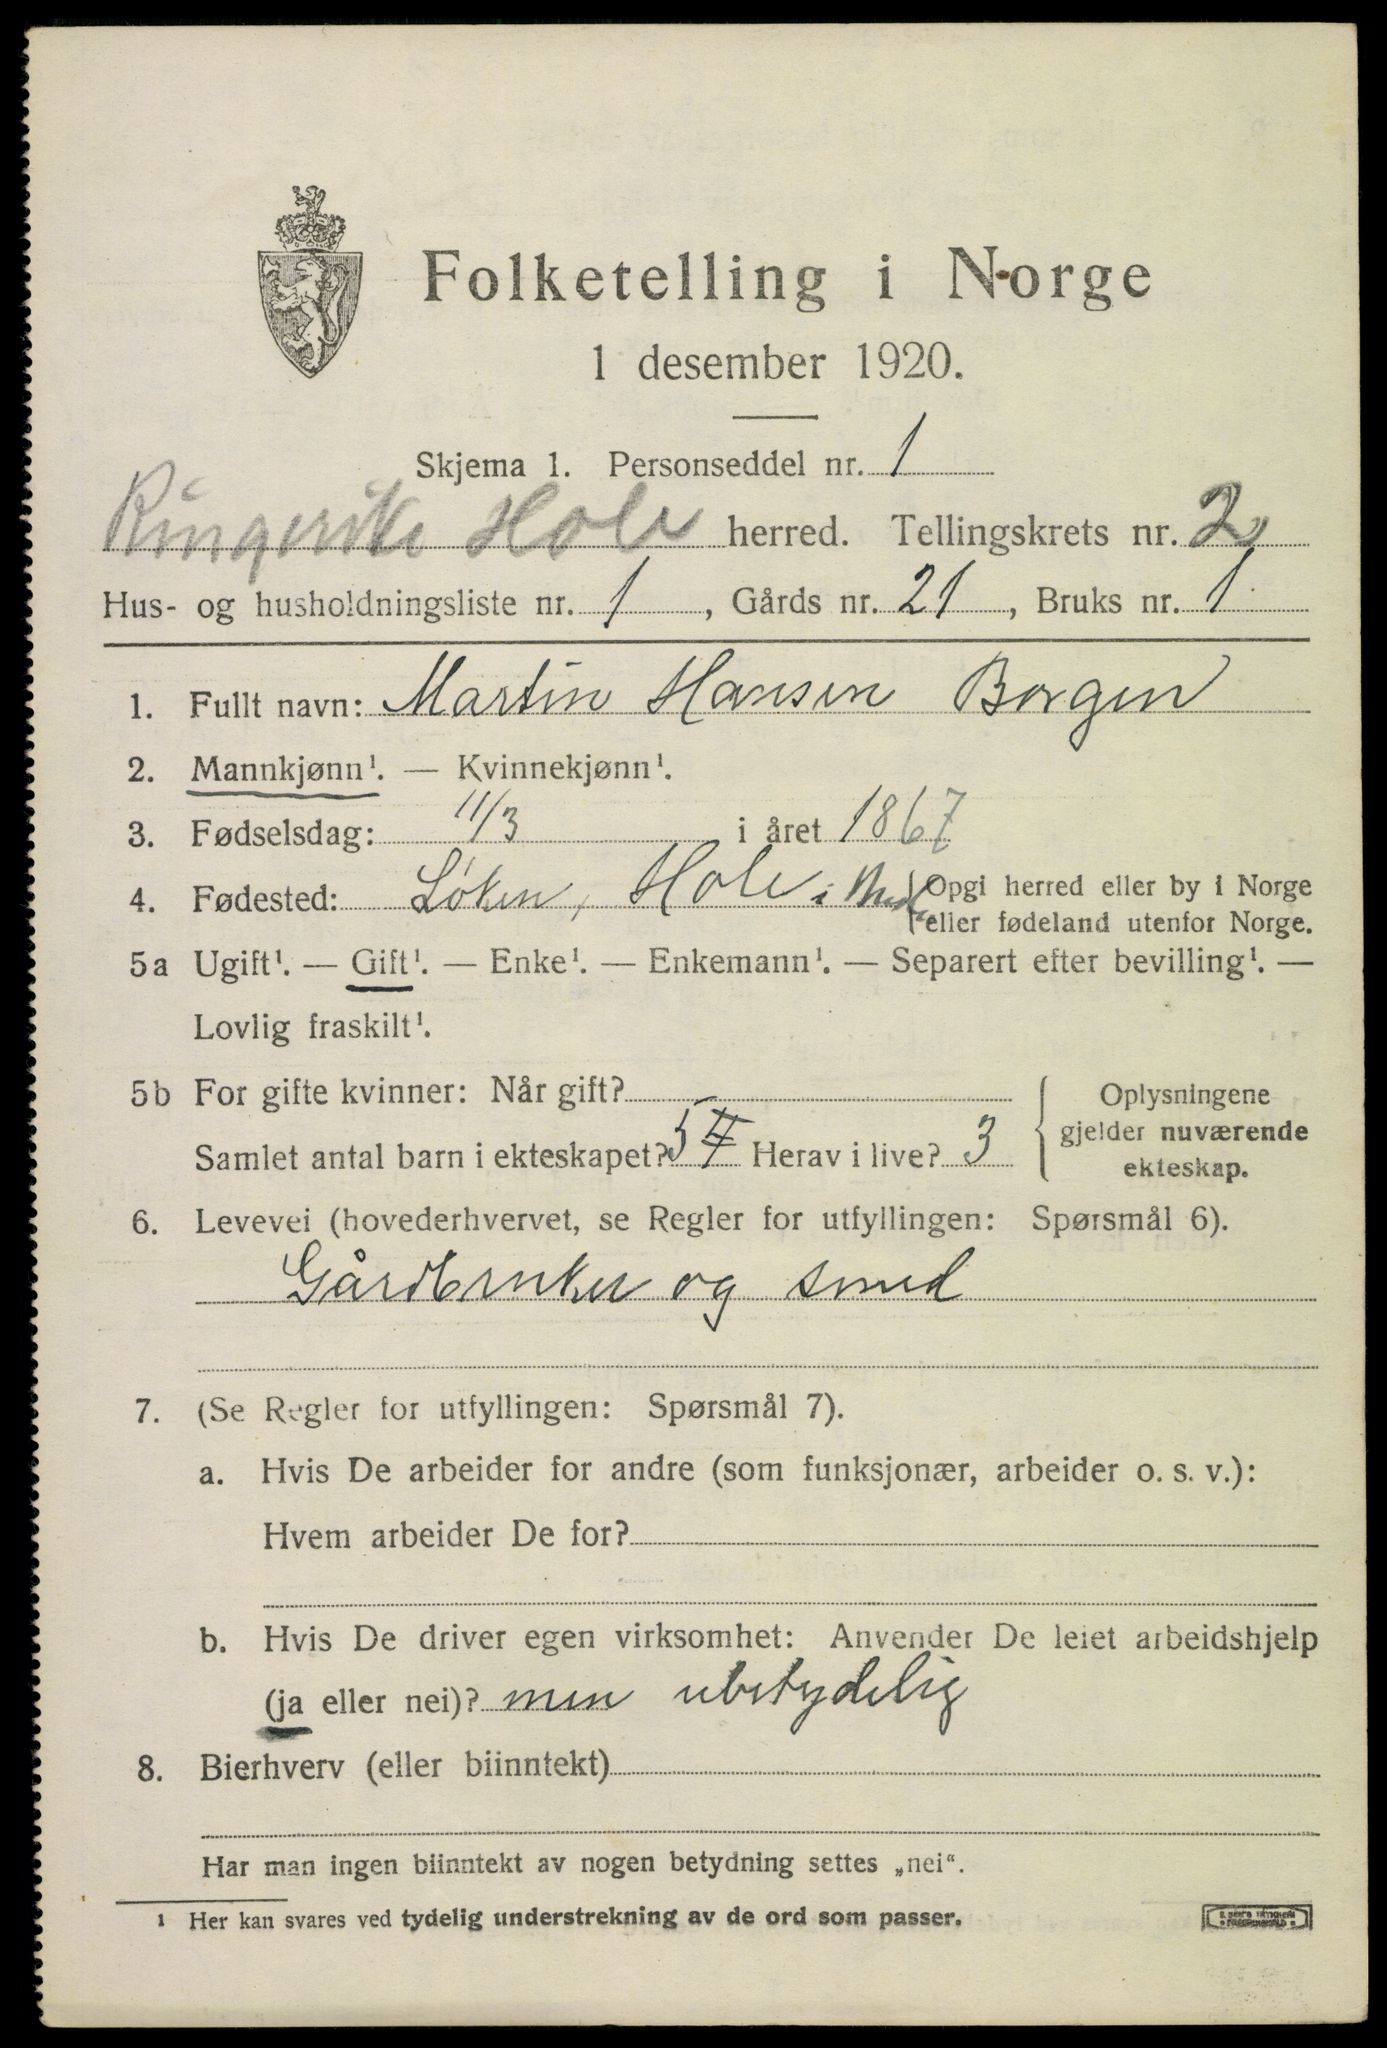 Folketelling i Norge
1 desember 1920.
Skjema 1. Personseddel nr. 1
Ringerike Hole herred. Tellingskrets nr. 2
Hus- og husholdningsliste nr. 1, Gårds nr. 21, Bruks nr. 1
1. Fullt navn: Martin Hansen Borgen
2. Mannkjønn¹. — Kvinnekjønn¹.
3. Fødselsdag: 11/3 i året 1867
4. Fødested: Løken, Hole i {Opgi herred eller by i Norge
eller fødeland utenfor Norge.
5a Ugift¹. — Gift¹. — Enke¹. — Enkemann¹. — Separert efter bevilling¹. —
Lovlig fraskilt¹.
5b For gifte kvinner: Når gift?
Samlet antal barn i ekteskapet? 5 Herav i live? 3
{ Oplysningene
gjelder nuværende
ekteskap.
6. Levevei (hovederhvervet, se Regler for utfyllingen: Spørsmål 6).
Gårdbruker og smed
7. (Se Regler for utfyllingen: Spørsmål 7).
a. Hvis De arbeider for andre (som funksjonær, arbeider o. s. v.):
Hvem arbeider De for?
b. Hvis De driver egen virksomhet: Anvender De leiet arbeidshjelp
(ja eller nei)? men ubetydelig
8. Bierhverv (eller biinntekt)
Har man ingen biinntekt av nogen betydning settes „nei“.
¹ Her kan svares ved tydelig understrekning av de ord som passer.